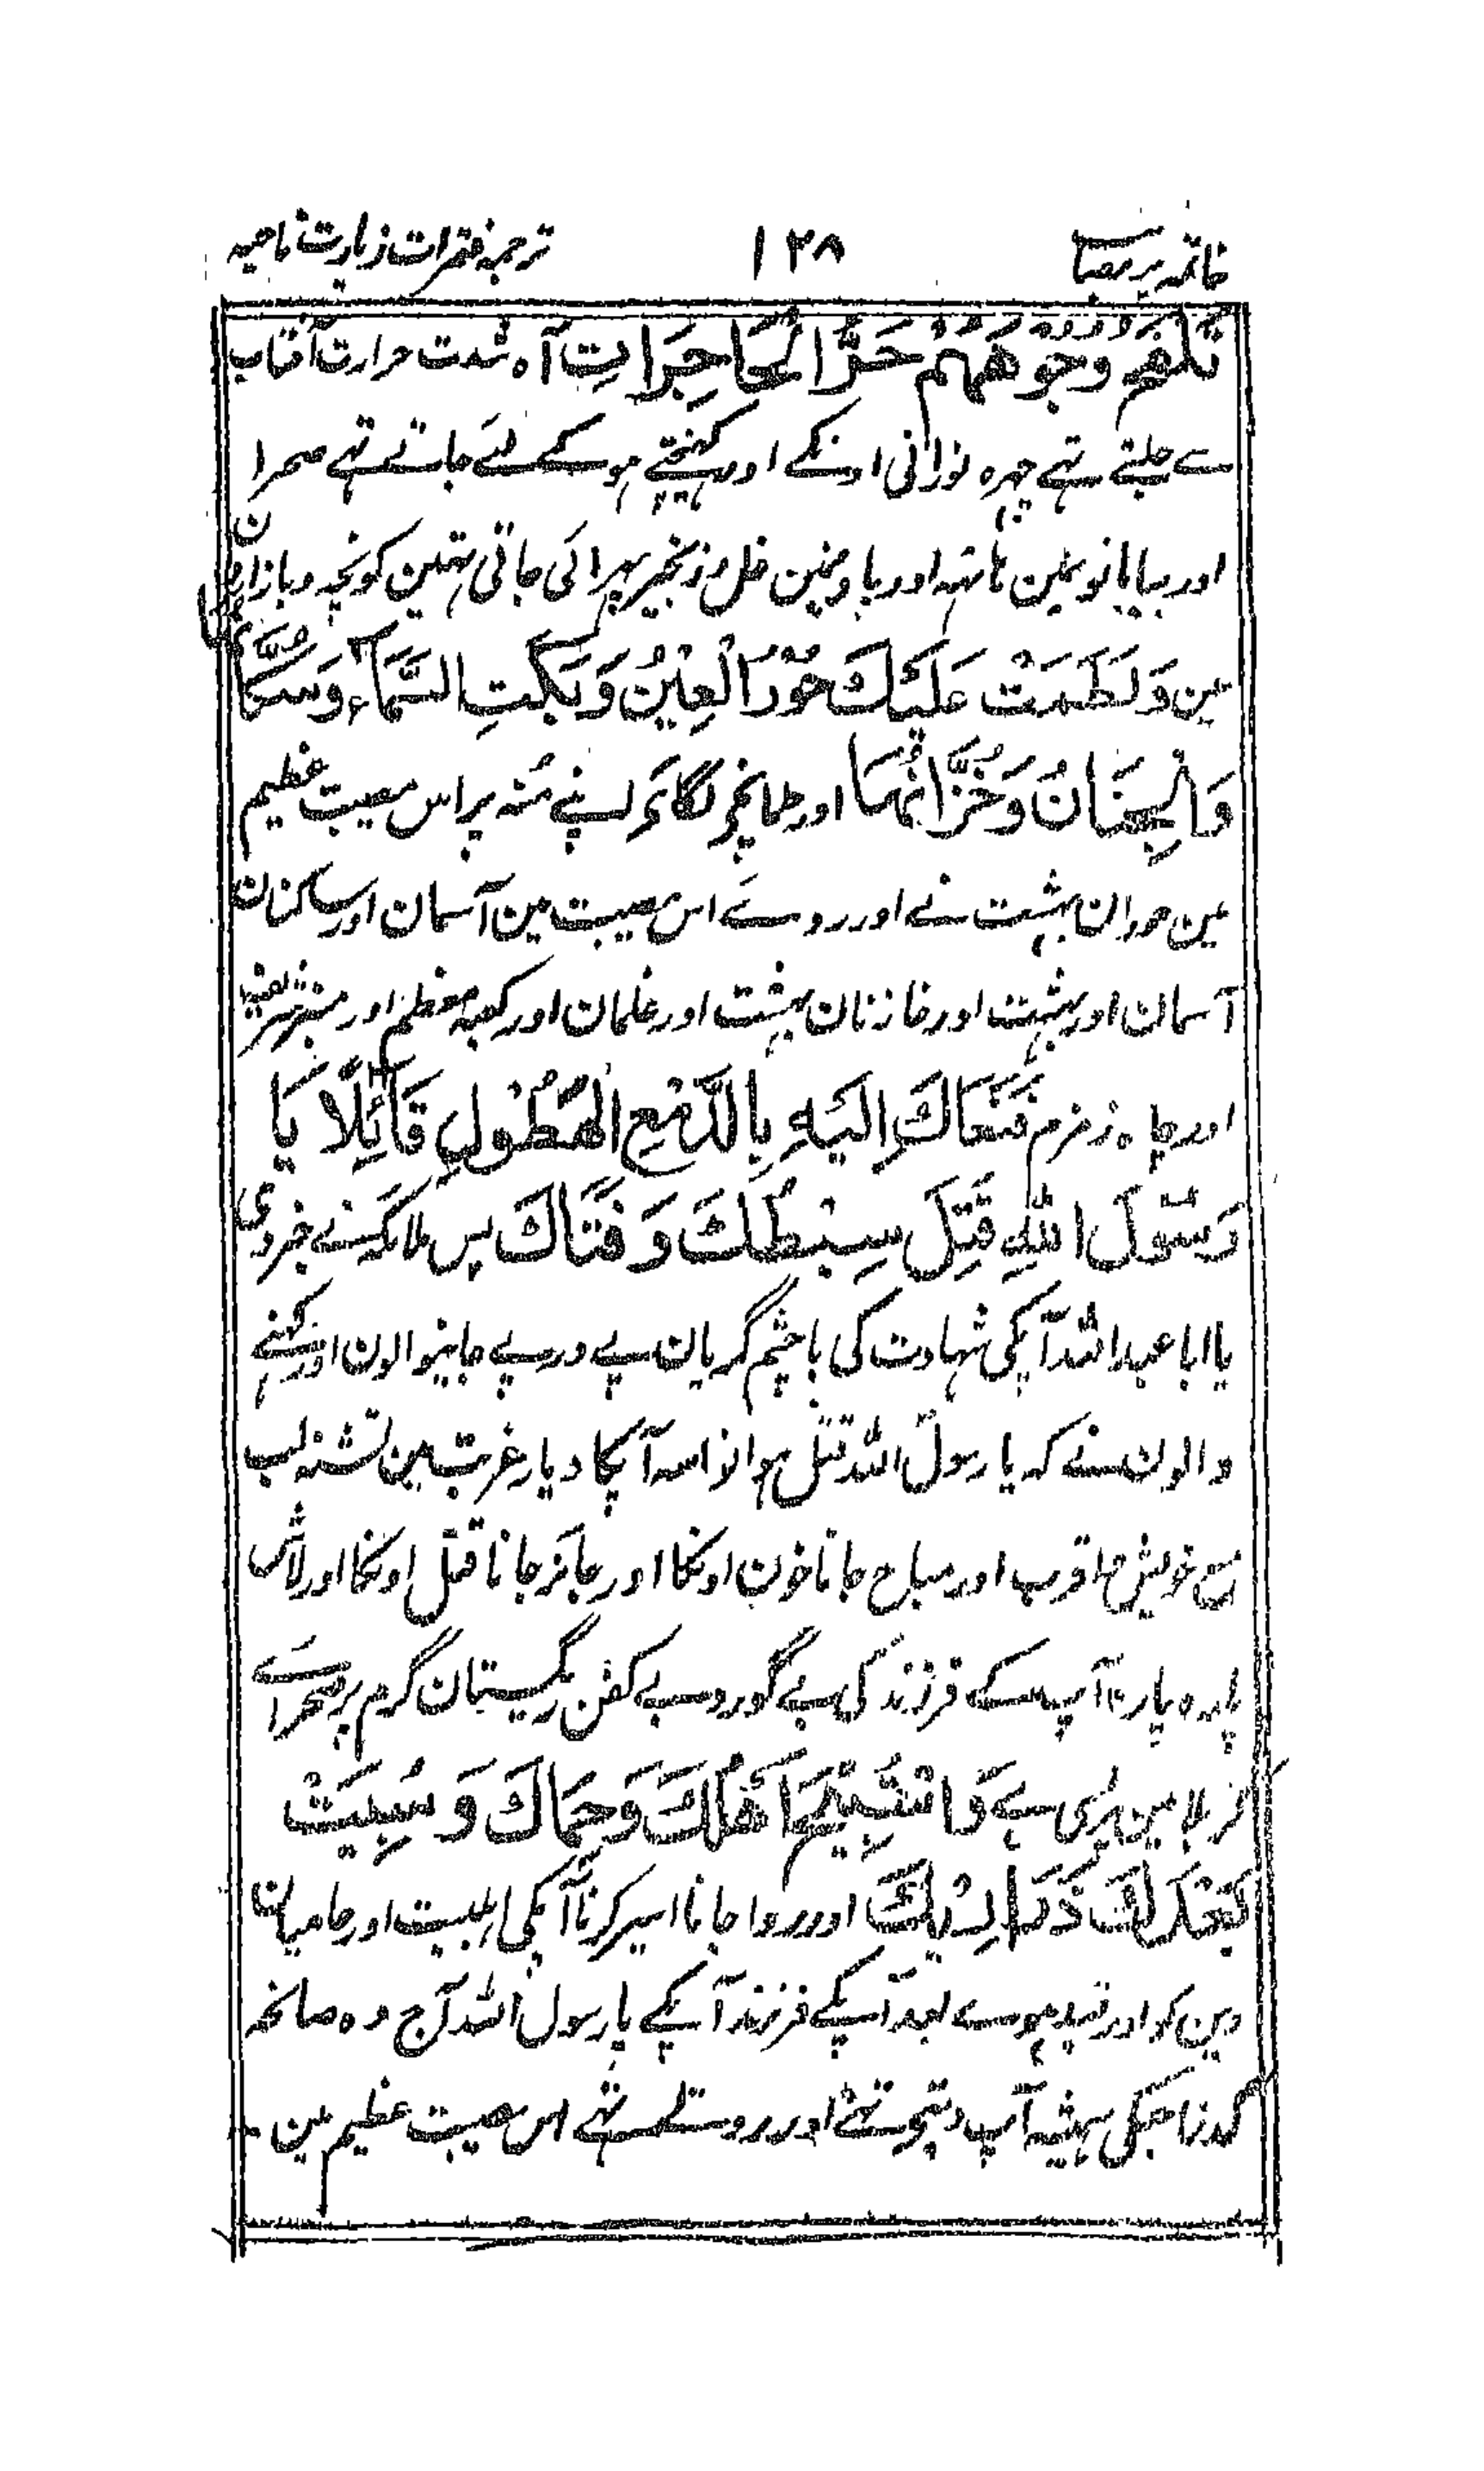 خاتمہ بر مصبا ۱۲۸ ترجمہ فقرات زیارت ناحیہ
تَلْفَحُ وُجُوْهَهُمْ حَرُّ الْهَاجِرَاتِ آہ شدت حرارت آفتاب
سے جلتے تہے چہرہ نورانی اونکے اور کہنچتے ہوئے لئے جاتے تہے صحرا
اور بیابانونمین ہاتہہ اور پاونمین غل وزنجیر پہرائی جاتی تہین کوچہ و بازارون
مین وَلَطَمَتْ عَلَيْكَ حُوْرُ الْعِيْنُ وَبَكَتِ السَّمَاءُ وَسُكَّانُهَا
وَالْجِنَانُ وَخُزَّانُهَا اور طمانچے لگائے اپنے مُنہ پر اس مصیبت عظیم
مین حوران بہشت نے اور روئے اس مصیبت مین آسمان اور ساکنان
آسمان اور بہشت اور خازنان بہشت اور غلمان اور کعبہ معظم اور مشعر
اور چاہ زمزم فَنَعَاكَ اِلَيْهِ بِالدَّمْعِ الْهَطُوْلِ قَائِلًا يَا
رَسُوْلَ اللهِ قُتِلَ سِبْطُكَ وَفَتَاكَ پس ملائکہ نے خبر دی
یا ابا عبد اللہ آپکی شہادت کی با چشم گریان پے درپے جانیوالون اور کہنے
والون نے کہ یا رسول اللہ قتل ہوا نواسہ آپکا دیار غربت مین تشنہ لب
مع خویش و اقربا اور مباح جانا خون اونکا اور جائز جانا قتل اونکا اور لاش
پارہ پارہ آپ کے فرزند کی بے گور و بے کفن ریگستان گرم پر صحرائے
کربلا مین پڑی ہے وَاسْتُبِيْحَ اَهْلُكَ وَحِمَاكَ وَسُبِيَتْ
بَعْدَكَ ذَرَارِيْكَ اور روا جانا اسیر کرنا آپکی اہلبیت اور حامیان
دین کو اور قید ہوئے بعد آپکے فرزند آپکے یا رسول اللہ آج وہ سانحہ
گذرا جسکی ہمیشہ آپ دیتے تھے اور روتے تہے اس مصیبت عظیم مین